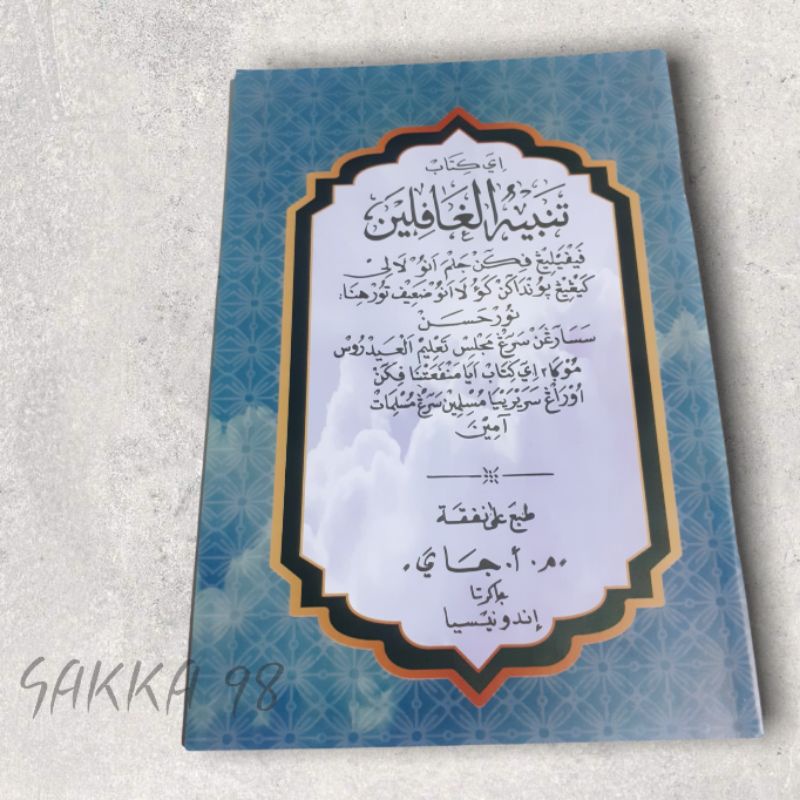 اِيَ كِتَابْ
تَنْبِيْهُ الْغَافِلِيْنَ
فَيْفَيْلِيْڠْ فِكَنْ جَلْمَ اَنُوْ لَالِى
كَيْڠِيْڠْ بُوْنْدَاكَنْ كَوُلَا اَنُوْ ضَعِيْف تُوْرْ هِنَا:
نُوْرْ حَسَنْ
سَسَارَڠَنْ سَرَڠْ مَجْلِسْ تَعْلِيْمِ الْعَيْدَرُوْسْ
مُوْݢَا٢ اِيَ كِتَابْ اَيَا مَنْفَعَتْنَا فِكَنْ
اُوْرَاڠْ سَرَيْرَيْيَا مُسْلِمِيْنْ سَرَڠْ مُسْلِمَاتْ
آمِيْنْ
طبع على نفقة
٠م٠ أ٠ جَايَ٠
جاكرتا
إندونيسيا
SAKKA 98